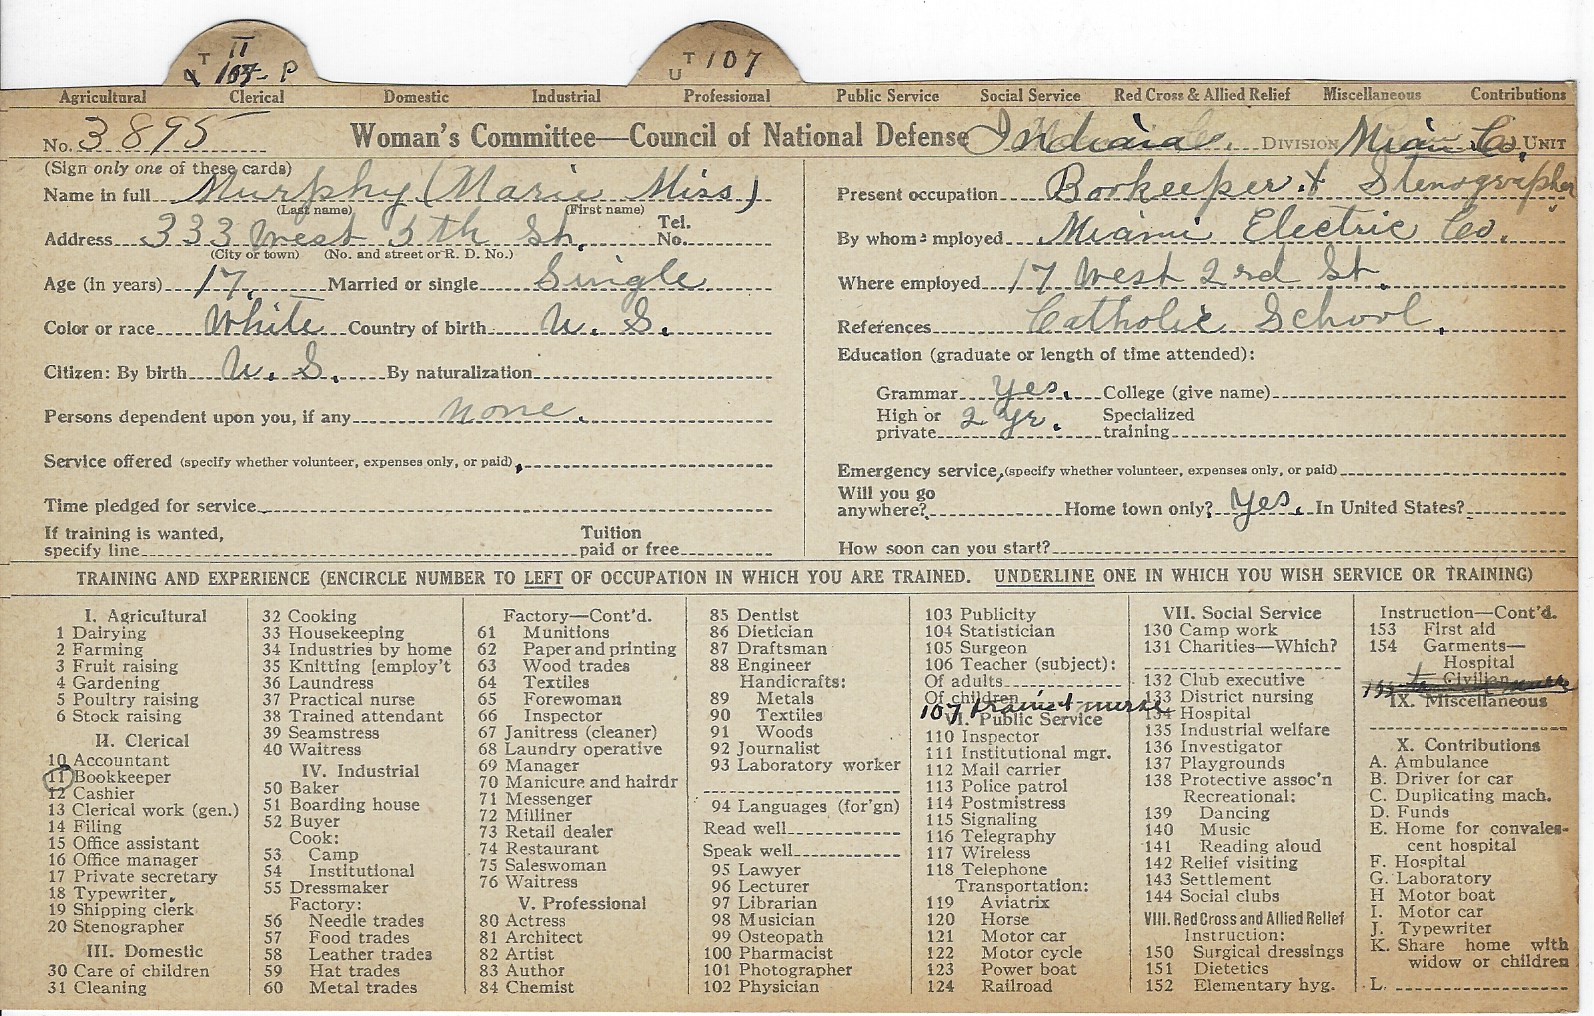 T 11 T 107
107 P U
Agricultural Clerical Domestic Industrial Professional Public Service Social Service Red Cross & Allied Relief Miscellaneous Contributions
No. 3895 Woman's Committee—Council of National Defense Indiana DIVISION Miami Co. UNIT
(Sign only one of these cards)
Name in full Murphy (Marie Miss)
(Last name) (First name)
Address 333 West 5th St. Tel. No.
(City or town) (No. and street or R. D. No.)
Age (in years) 17. Married or single Single
Color or race White Country of birth U. S.
Citizen: By birth U. S. By naturalization
Persons dependent upon you, if any none.
Service offered (specify whether volunteer, expenses only, or paid)
Time pledged for service
If training is wanted, specify line Tuition paid or free
Present occupation Bookeeper & Stenographer
By whom employed Miami Electric Co.
Where employed 17 West 2nd St.
References Catholic School.
Education (graduate or length of time attended):
Grammar Yes. College (give name)
High or private 2 yr. Specialized training
Emergency service, (specify whether volunteer, expenses only, or paid)
Will you go anywhere? Home town only? Yes. In United States?
How soon can you start?
TRAINING AND EXPERIENCE (ENCIRCLE NUMBER TO LEFT OF OCCUPATION IN WHICH YOU ARE TRAINED. UNDERLINE ONE IN WHICH YOU WISH SERVICE OR TRAINING)
I. Agricultural
1 Dairying
2 Farming
3 Fruit raising
4 Gardening
5 Poultry raising
6 Stock raising
II. Clerical
10 Accountant
11 Bookkeeper
12 Cashier
13 Clerical work (gen.)
14 Filing
15 Office assistant
16 Office manager
17 Private secretary
18 Typewriter
19 Shipping clerk
20 Stenographer
III. Domestic
30 Care of children
31 Cleaning
32 Cooking
33 Housekeeping
34 Industries by home
35 Knitting [employ't
36 Laundress
37 Practical nurse
38 Trained attendant
39 Seamstress
40 Waitress
IV. Industrial
50 Baker
51 Boarding house
52 Buyer
Cook:
53 Camp
54 Institutional
55 Dressmaker
Factory:
56 Needle trades
57 Food trades
58 Leather trades
59 Hat trades
60 Metal trades
Factory—Cont'd.
61 Munitions
62 Paper and printing
63 Wood trades
64 Textiles
65 Forewoman
66 Inspector
67 Janitress (cleaner)
68 Laundry operative
69 Manager
70 Manicure and hairdr
71 Messenger
72 Milliner
73 Retail dealer
74 Restaurant
75 Saleswoman
76 Waitress
V. Professional
80 Actress
81 Architect
82 Artist
83 Author
84 Chemist
85 Dentist
86 Dietician
87 Draftsman
88 Engineer
Handicrafts:
89 Metals
90 Textiles
91 Woods
92 Journalist
93 Laboratory worker
94 Languages (for'gn)
Read well
Speak well
95 Lawyer
96 Lecturer
97 Librarian
98 Musician
99 Osteopath
100 Pharmacist
101 Photographer
102 Physician
103 Publicity
104 Statistician
105 Surgeon
106 Teacher (subject):
Of adults
Of children
107 trained nurse
VI. Public Service
110 Inspector
111 Institutional mgr.
112 Mail carrier
113 Police patrol
114 Postmistress
115 Signaling
116 Telegraphy
117 Wireless
118 Telephone
Transportation:
119 Aviatrix
120 Horse
121 Motor car
122 Motor cycle
123 Power boat
124 Railroad
VII. Social Service
130 Camp work
131 Charities—Which?
132 Club executive
133 District nursing
134 Hospital
135 Industrial welfare
136 Investigator
137 Playgrounds
138 Protective assoc'n
Recreational:
139 Dancing
140 Music
141 Reading aloud
142 Relief visiting
143 Settlement
144 Social clubs
VIII. Red Cross and Allied Relief
Instruction:
150 Surgical dressings
151 Dietetics
152 Elementary hyg.
Instruction—Cont'd.
153 First aid
154 Garments—
Hospital
Civilian
IX. Miscellaneous
X. Contributions
A. Ambulance
B. Driver for car
C. Duplicating mach.
D. Funds
E. Home for convales-
cent hospital
F. Hospital
G. Laboratory
H Motor boat
I. Motor car
J. Typewriter
K. Share home with
widow or children
L.